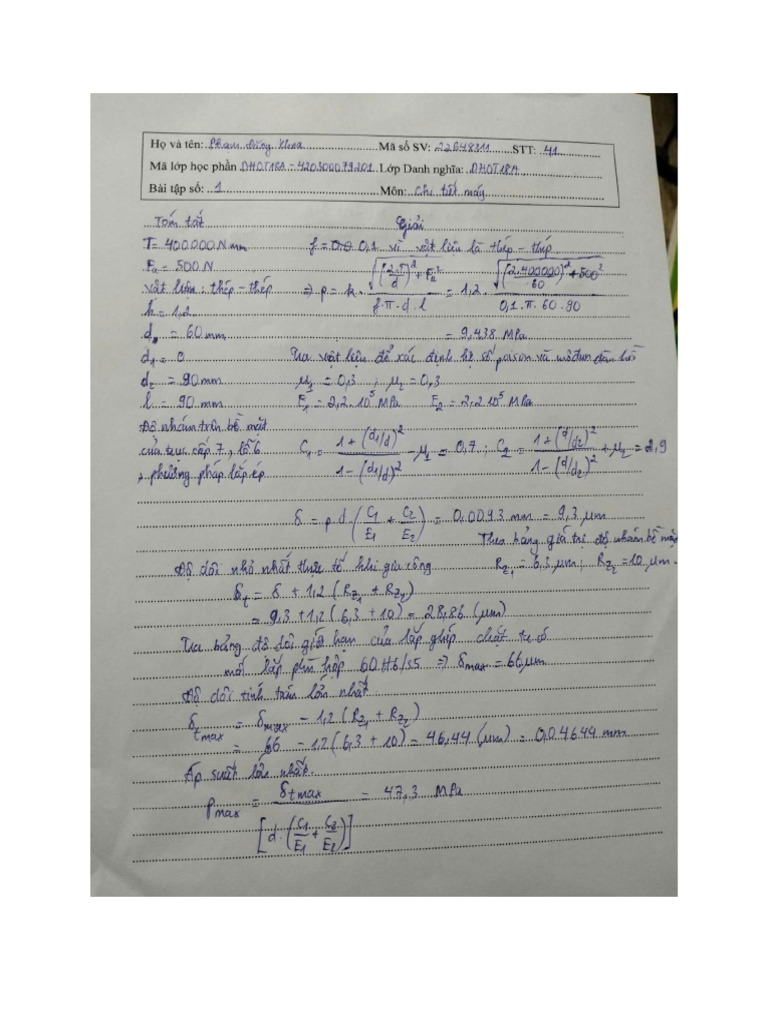 Họ và tên: Phạm Đăng Khoa Mã số SV: 22648311 STT: 41
Mã lớp học phần DHOT18A - 420300079201 Lớp Danh nghĩa: DHOT18A
Bài tập số: 1 Môn: Chi tiết máy
Tóm tắt Giải
T = 400000 N.mm f = 0,1 vì vật liệu là thép - thép
Fa = 500 N
vật liệu: thép - thép ⇒ p = k · √((2.T/d)² + Fa²) / (f.π.d.l) = 1,2 · √((2.400000/60)² + 500²) / (0,1.π.60.90)
k = 1,2
d = 60 mm = 9,438 MPa
d1 = 0 Tra vật liệu để xác định hệ số poison và môđun đàn hồi
d2 = 90 mm μ1 = 0,3 ; μ2 = 0,3
l = 90 mm E1 = 2,2.10⁵ MPa E2 = 2,2.10⁵ MPa
Độ nhám trên bề mặt
của trục cấp 7, lỗ 6 C1 = (1 + (d1/d)²) / (1 - (d1/d)²) - μ1 = 0,7 ; C2 = (1 + (d/d2)²) / (1 - (d/d2)²) + μ2 = 2,9
, phương pháp lắp ép
δ = p.d.(C1/E1 + C2/E2) = 0,0093 mm = 9,3 μm
Theo bảng giá trị độ nhám bề mặt
Độ dôi nhỏ nhất thực tế khi gia công Rz1 = 6,3 μm ; Rz2 = 10 μm.
δt = δ + 1,2 (Rz1 + Rz2)
= 9,3 + 1,2 (6,3 + 10) = 28,86 (μm)
Tra bảng độ dôi giới hạn của lắp ghép chặt ta có
mối lắp phù hợp 60 H6/s5 ⇒ δmax = 66 μm
Độ dôi tính toán lớn nhất
δtmax = δmax - 1,2 (Rz1 + Rz2)
= 66 - 1,2 (6,3 + 10) = 46,44 (μm) = 0,04644 mm
Áp suất lớn nhất.
Pmax = δtmax / [d.(C1/E1 + C2/E2)] = 47,3 MPa